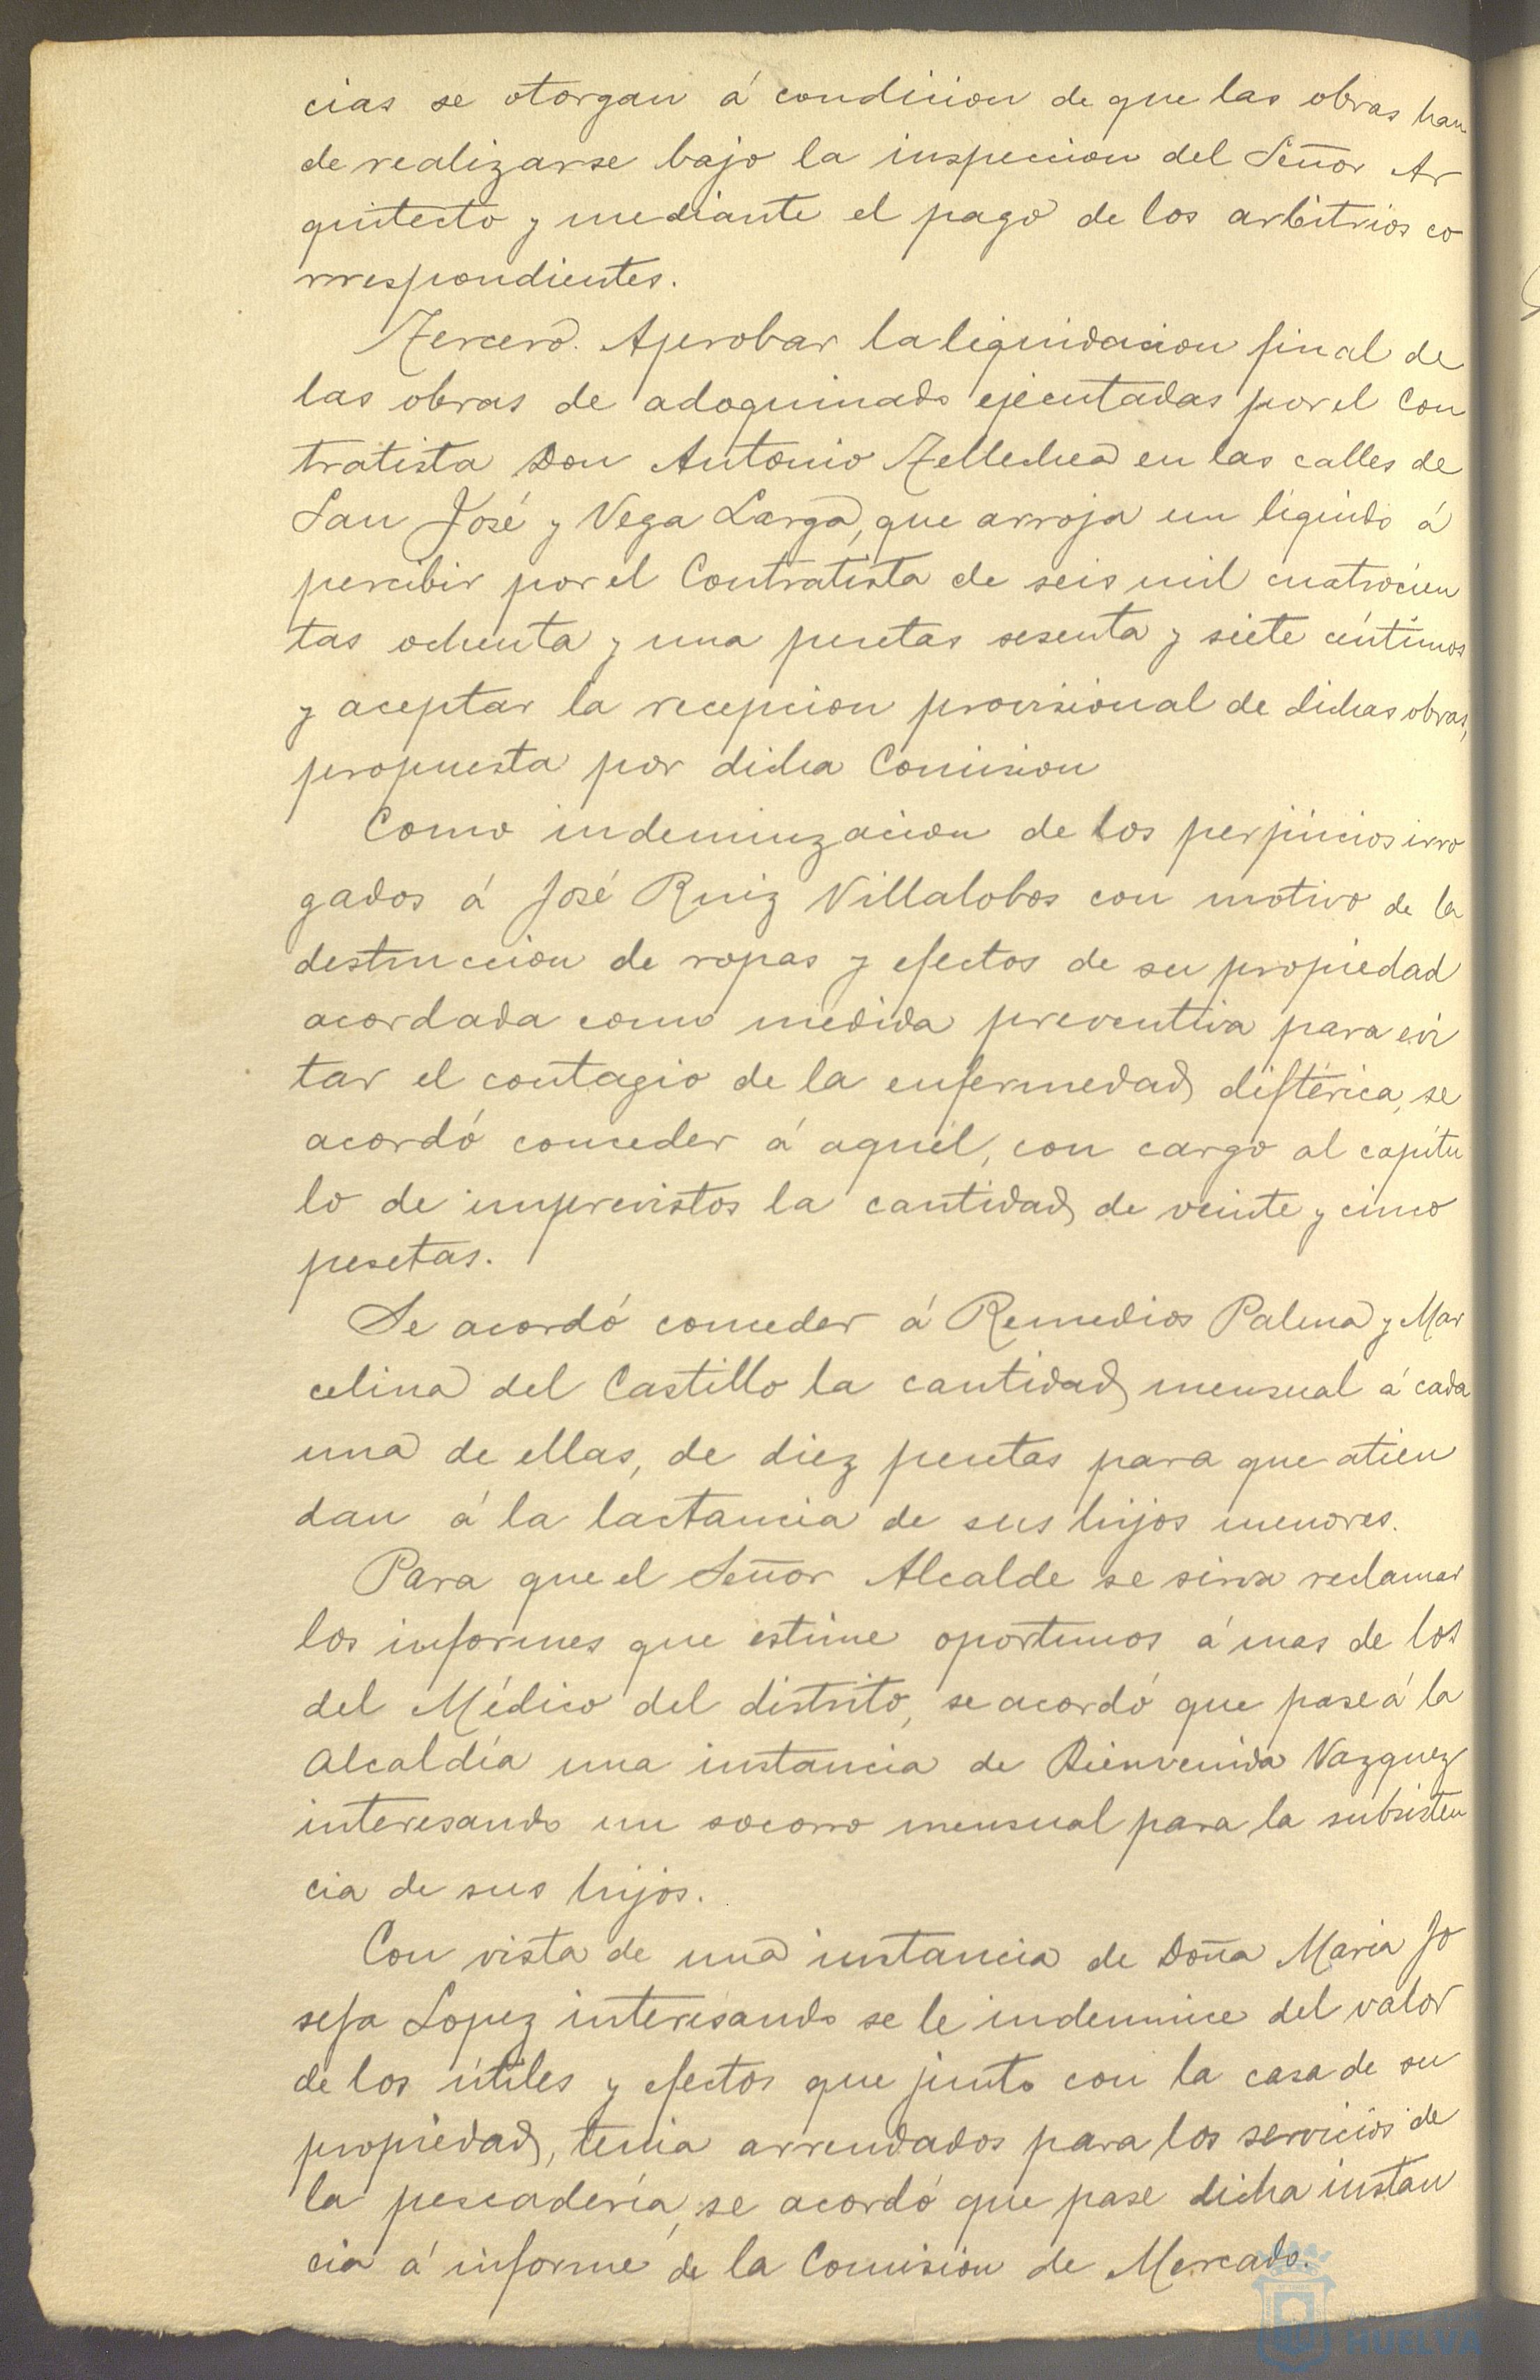 cias se otorgan á condicion de que las obras han
de realizarse bajo la inspeccion del Señor Ar
quitecto y mediante el pago de los arbitrios co
rrespondientes.
Tercero. Aprobar la liquidacion final de
las obras de adoquinado ejecutadas por el Con
tratista Don Antonio Tellechea en las calles de
San José y Vega Larga, que arroja un líquido á
percibir por el Contratista de seis mil cuatrocien
tas ochenta y una pesetas sesenta y siete céntimos
y aceptar la recepcion provisional de dichas obras,
propuesta por dicha Comision
Como indemnizacion de los perjuicios irro
gados á José Ruiz Villalobos con motivo de la
destruccion de ropas y efectos de su propiedad
acordada como medida preventiva para evi
tar el contagio de la enfermedad diftérica, se
acordó conceder á aquél, con cargo al capítu
lo de imprevistos la cantidad de veinte y cinco
pesetas.
Se acordó conceder á Remedios Palma y Mar
celina del Castillo la cantidad mensual á cada
una de ellas, de diez pesetas para que atien
dan á la lactancia de sus hijos menores.
Para que el Señor Alcalde se sirva reclamar
los informes que estime oportunos á mas de los
del Médico del distrito, se acordó que pase á la
Alcaldía una instancia de Bienvenida Vazquez
interesando un socorro mensual para la subsisten
cia de sus hijos.
Con vista de una instancia de Doña Maria Jo
sefa Lopez interesando se le indemnice del valor
de los útiles y efectos que junto con la casa de su
propiedad, tenia arrendados para los servicios de
la pescadería, se acordó que pase dicha instan
cia á informe de la Comision de Mercado.
HUELVA